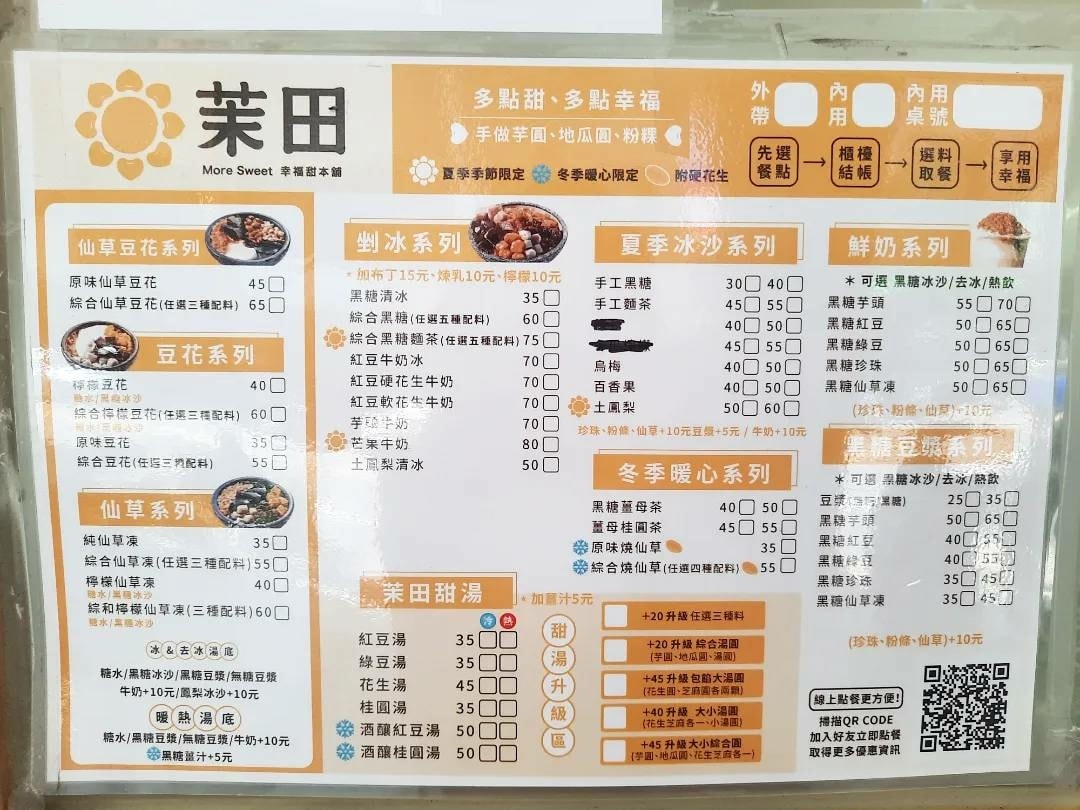 茉田
More Sweet 幸福甜本舖
多點甜、多點幸福
手做芋圓、地瓜圓、粉粿
夏季季節限定 冬季暖心限定 附硬花生
外帶 內用 內用桌號
先選餐點 → 櫃檯結帳 → 選料取餐 → 享用幸福
仙草豆花系列
原味仙草豆花 45
綜合仙草豆花(任選三種配料) 65
豆花系列
檸檬豆花 40
糖水/黑糖冰沙
綜合檸檬豆花(任選三種配料) 60
糖水/黑糖冰沙
原味豆花 35
綜合豆花(任選三種配料) 55
仙草系列
純仙草凍 35
綜合仙草凍(任選三種配料) 55
檸檬仙草凍 40
糖水/黑糖冰沙
綜和檸檬仙草凍(三種配料) 60
糖水/黑糖冰沙
冰&去冰湯底
糖水/黑糖冰沙/黑糖豆漿/無糖豆漿
牛奶+10元/鳳梨冰沙+10元
暖熱湯底
糖水/黑糖豆漿/無糖豆漿/牛奶+10元
黑糖薑汁+5元
剉冰系列
*加布丁15元、煉乳10元、檸檬10元
黑糖清冰 35
綜合黑糖(任選五種配料) 60
綜合黑糖麵茶(任選五種配料) 75
紅豆牛奶冰 70
紅豆硬花生牛奶 70
紅豆軟花生牛奶 70
芋頭牛奶 70
芒果牛奶 80
土鳳梨清冰 50
茉田甜湯
*加薑汁5元
冷 熱
紅豆湯 35
綠豆湯 35
花生湯 45
桂圓湯 35
酒釀紅豆湯 50
酒釀桂圓湯 50
夏季冰沙系列
手工黑糖 30 40
手工麵茶 45 55
40 50
45 55
烏梅 40 50
百香果 40 50
土鳳梨 50 60
珍珠、粉條、仙草+10元豆漿+5元 / 牛奶+10元
冬季暖心系列
黑糖薑母茶 40 50
薑母桂圓茶 45 55
原味燒仙草 35
綜合燒仙草(任選四種配料) 55
甜湯升級區
+20 升級 任選三種料
+20 升級 綜合湯圓
(芋圓、地瓜圓、湯圓)
+45 升級 包餡大湯圓
(花生圓、芝麻圓各兩顆)
+40 升級 大小湯圓
(花生芝麻各一、小湯圓)
+45 升級 大小綜合圓
(芋圓、地瓜圓、花生芝麻各一)
鮮奶系列
*可選 黑糖冰沙/去冰/熱飲
黑糖芋頭 55 70
黑糖紅豆 50 65
黑糖綠豆 50 65
黑糖珍珠 50 65
黑糖仙草凍 50 65
(珍珠、粉條、仙草)+10元
黑糖豆漿系列
*可選 黑糖冰沙/去冰/熱飲
豆漿(無糖/黑糖) 25 35
黑糖芋頭 50 65
黑糖紅豆 40 55
黑糖綠豆 40 55
黑糖珍珠 35 45
黑糖仙草凍 35 45
(珍珠、粉條、仙草)+10元
線上點餐更方便!
掃描QR CODE
加入好友立即點餐
取得更多優惠資訊